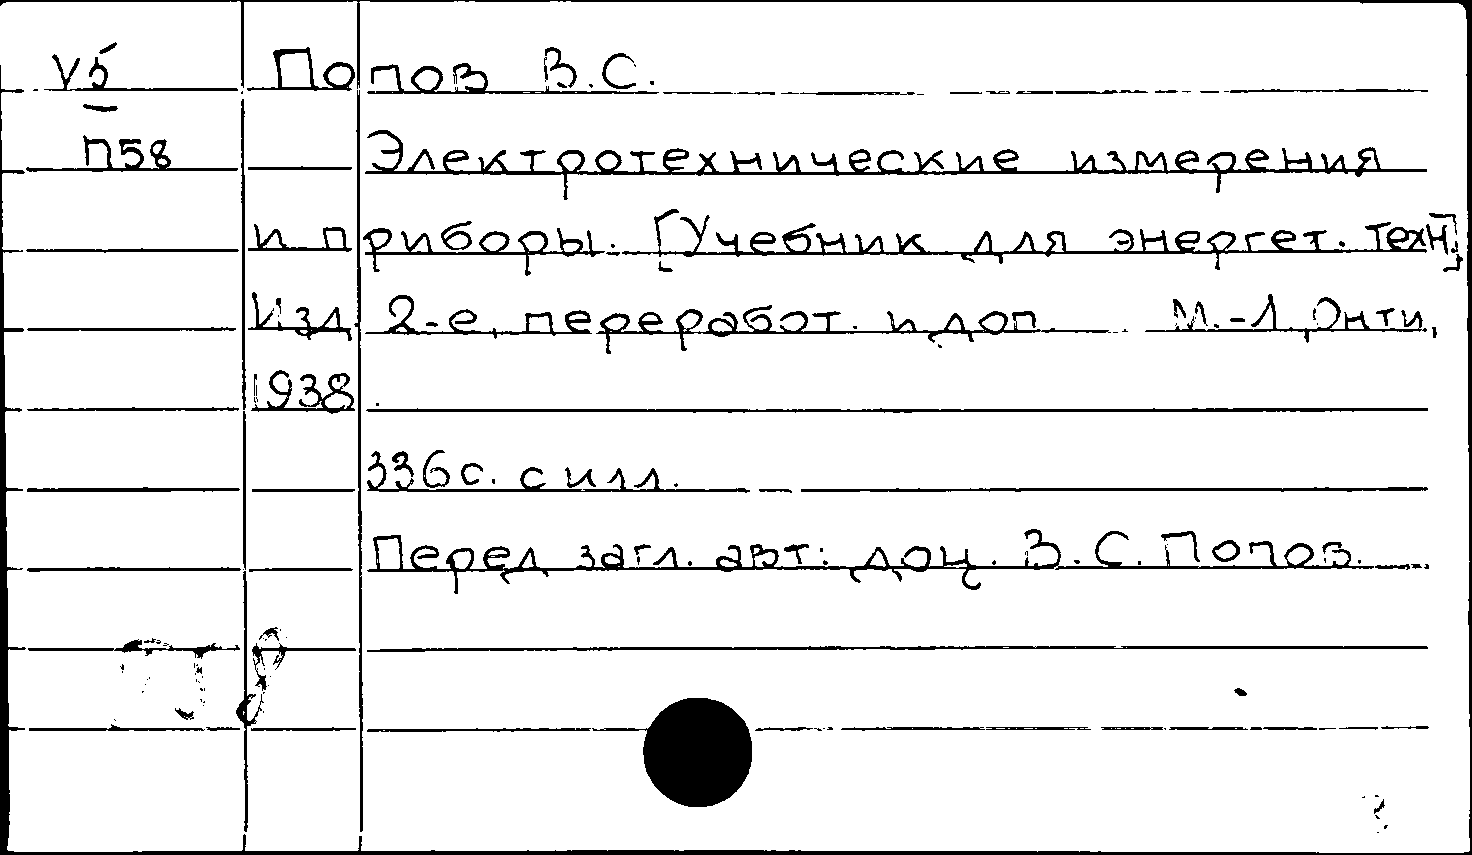 V5 Попов В.С.
П58 Электротехнические измерения
и приборы. [Учебник для энергет. техн.]
Изд. 2-е, переработ. и доп. М.-Л, Онти,
1938.
336 с. с илл.
Перед загл. авт: доц. В.С. Попов.